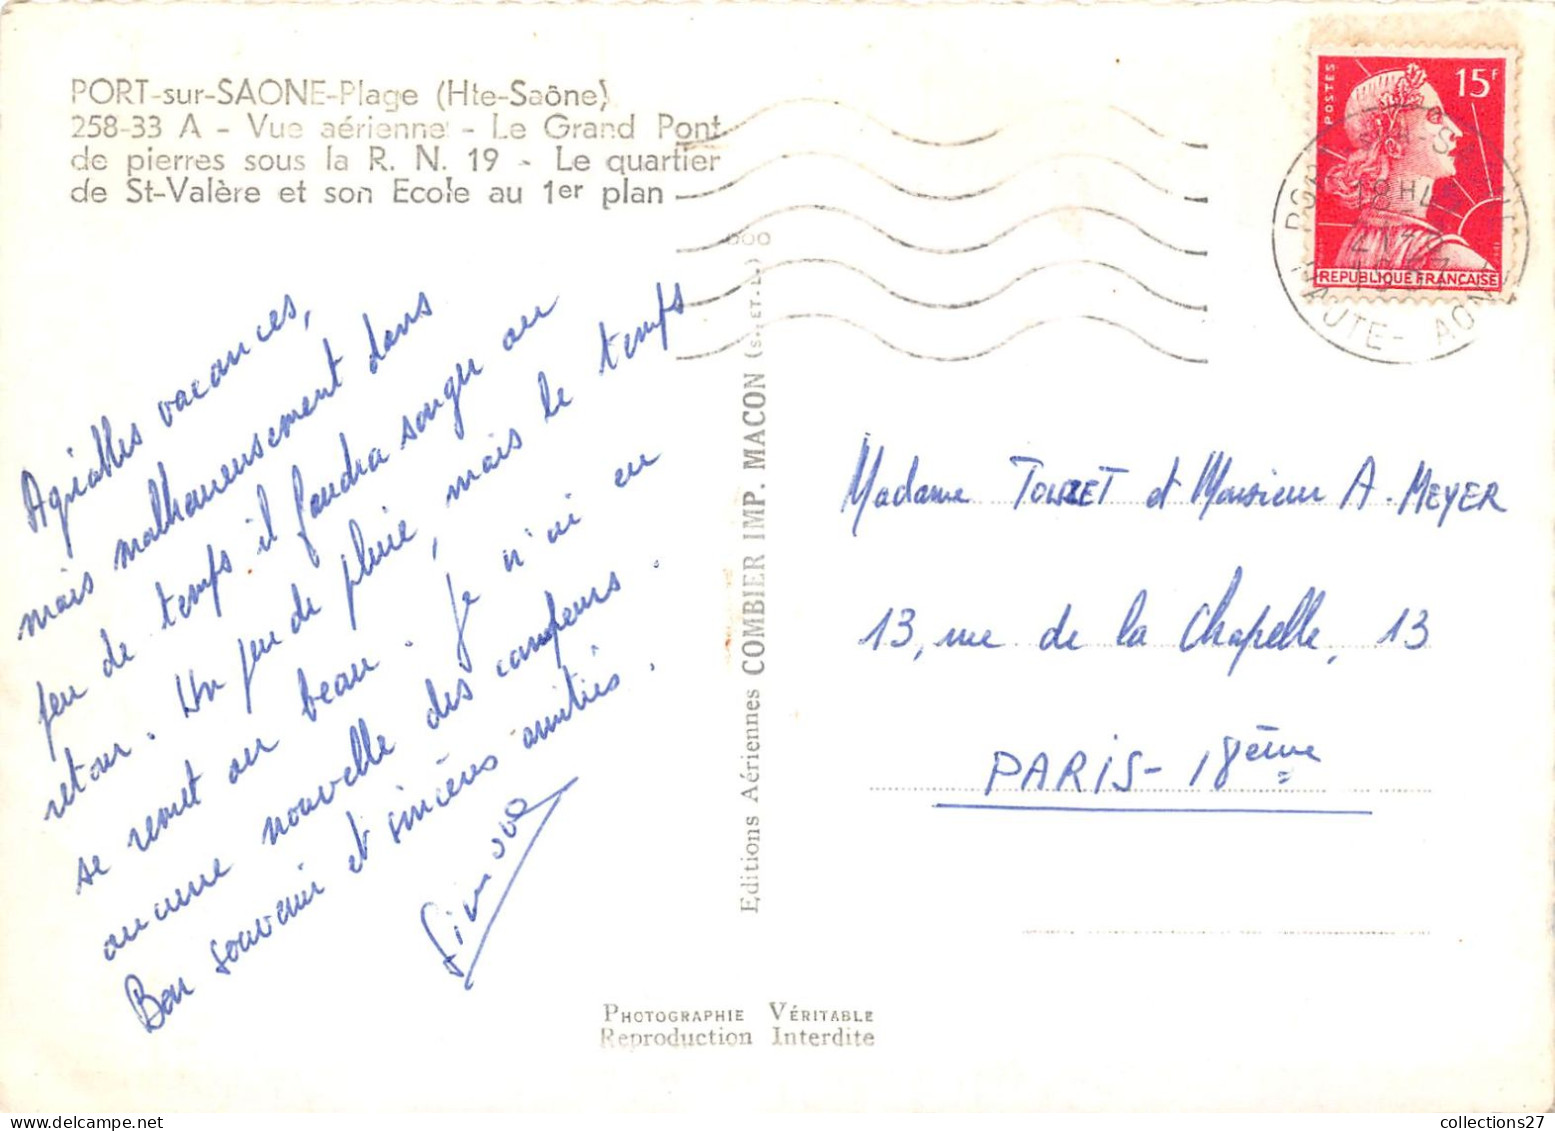 PORT-sur-SAONE-Plage (Hte-Saône)
258-33 A - Vue aérienne - Le Grand Pont
de pierres sous la R. N. 19 - Le quartier
de St-Valère et son Ecole au 1er plan
Agréables vacances,
mais malheureusement dans
peu de temps il faudra songer au
retour. Un peu de pluie, mais le temps
se remet au beau. Je n'ai eu
aucune nouvelle des campeurs.
Bon souvenir et sincères amitiés.
Editions Aériennes COMBIER IMP. MACON (S.-ET-L.)
POSTES
15F
REPUBLIQUE FRANÇAISE
18H
HAUTE-SAONE
Madame TOUZET et Monsieur A. MEYER
13, rue de la Chapelle, 13
PARIS-18ème
PHOTOGRAPHIE VÉRITABLE
Reproduction Interdite
collections27